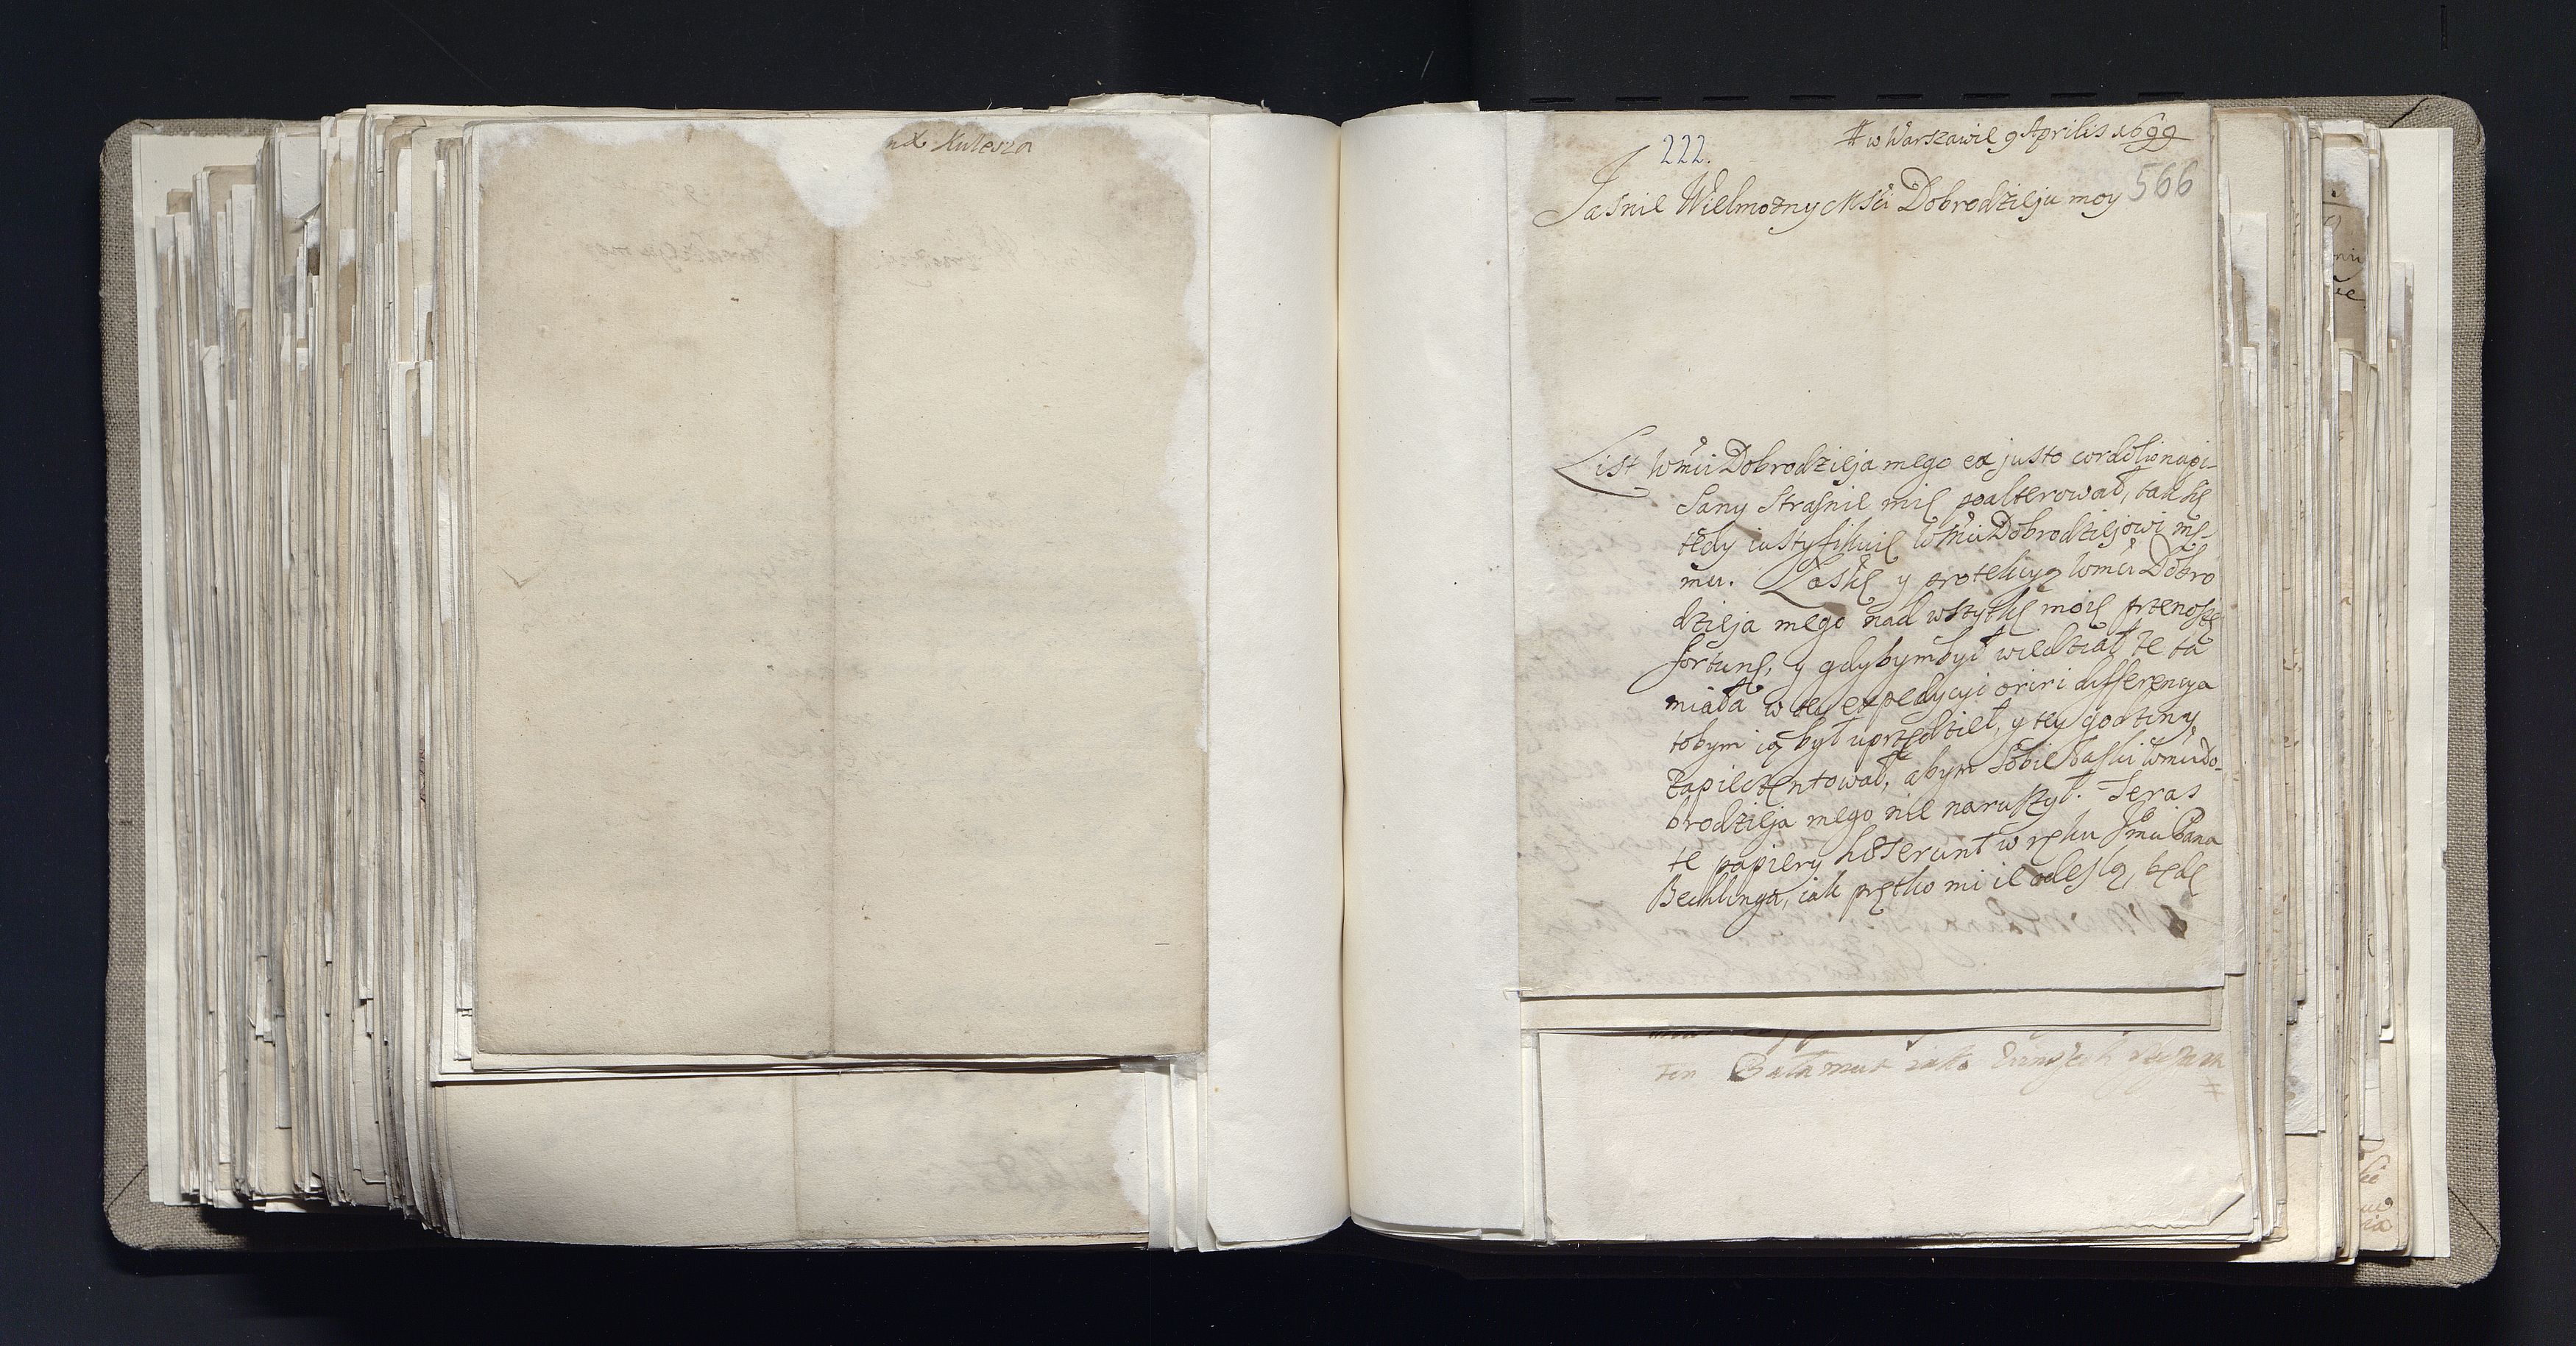 Kulesza
222.
w Warszawie 9 Aprilis 1699
566
Jasnie Wielmozny Msci Dobrodzieju moy
List Wmci Dobrodzieja mego ex justo cordolio napi-
sany strasnie mię zalterował, tak się
tedy iustyfikuię Wmci Dobrodziejowi me-
mu. Łaskę y protekcyą Wmci Dobro
dzieja mego nad wszytkę moię przenoszę
fortunę, y gdybym był wiedział że ta
miała w tey expedycyi oriri differencya
tobym ią był uprzedził, y tey godziny
zapieczętował, abym sobie łaski Wmci Do-
brodzieja mego nie naruszył. Teras
te papiery hæserunt w ręku Jmci Pana
Bechlinga, iak prętko mi ie odeslą, będę
ten Bałamut iako